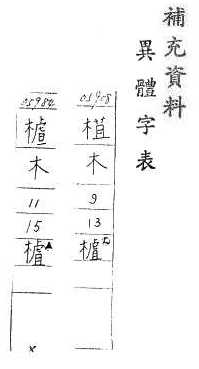 補充資料
異體字表
05908
木
9
13
樝
05984
樝
木
11
15
樝▲
x